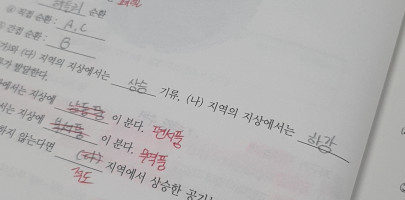 순환
ⓐ 직접 순환 : A, C
간접 순환 : B
(다) 지역의 지상에서는 상승 기류, (나) 지역의 지상에서는 하강
가 발달한다.
에서는 지상에 이 분다. 편서풍
서는 지상에 북서풍 이 분다. 무역풍
하지 않는다면 (다) 지역에서 상승한 공기
적도